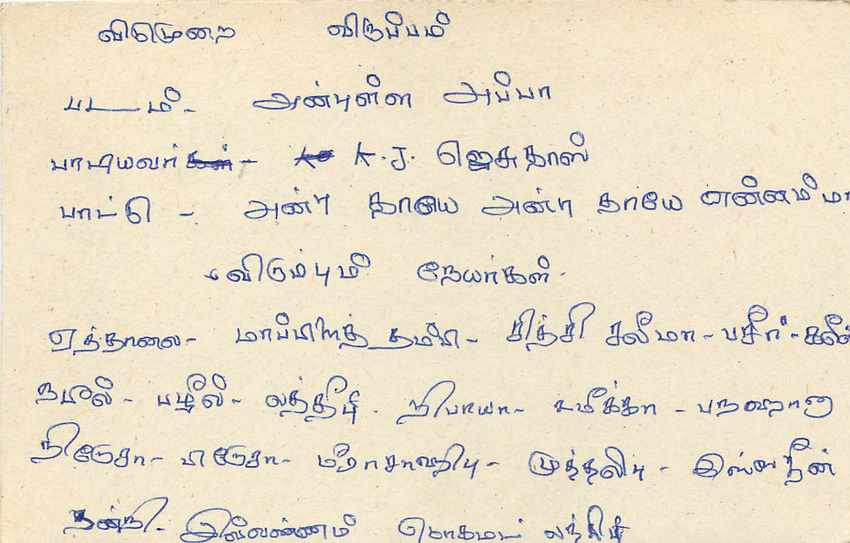 விடுமுறை விருப்பம்
படம் - அன்புள்ள அப்பா
பாடியவர் - K.J. ஜெசுதாஸ்
பாட்டு - அன்பு தாயே அன்பு தாயே என்னம்மா
விரும்பும் நேயர்கள்.
ஏத்தாலை - மாப்பிளைத் தம்பி - சித்தி சலீமா - பசீர் - கலீல்
நபீல் - பழீல் - லத்தீபு. நிபாயா - உமீக்கா - பநஹானு
நிரோசா - பிரோசா - மீராசாஹிபு - முத்தலிபு -
நன்றி - இவ்வண்ணம்